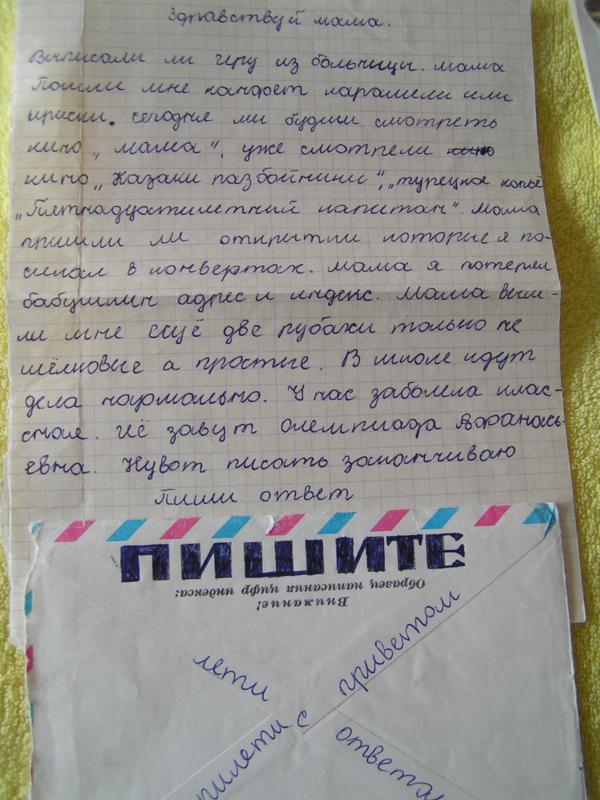 Здравствуй мама.
Выписали ли геру из больницы. мама
Пошли мне канфет карамели или
ириски. сегодня ми будим смотреть
кино „мама", уже смотрели
кино „Казаки разбойники", „турецкое копьё
„Пятнадцатилетний капитан". Мама
пришли ли открытки которые я по-
силал в конвертах. мама я потерял
бабушкин адрес и индекс. Мама выш-
ли мне ещё две рубахи только не
шёлковые а простые. В школе идут
дела нормально. У нас заболела клас-
сная. её завут Олемпиада Афанась-
евна. Нувот писать заканчиваю
Пиши ответ
ПИШИТЕ
Внимание!
Образец написания цифр индекса:
лети с приветом
прилети с ответом